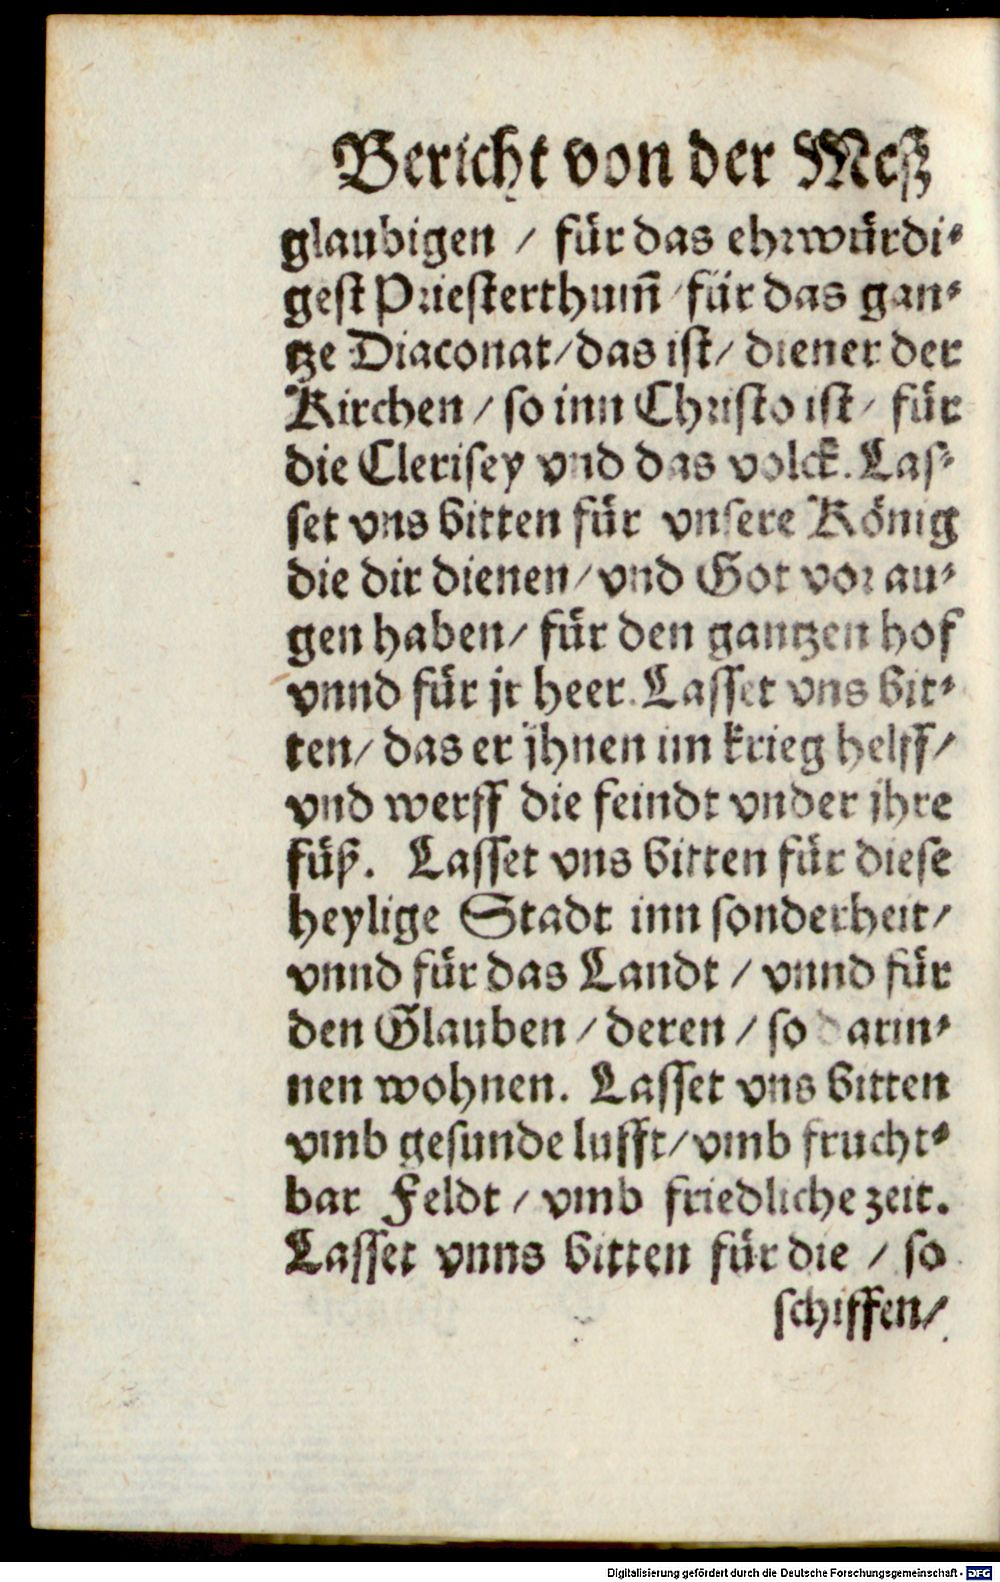 Bericht von der Meß
glaubigen / für das ehrwürdi⸗
gest Priesterthum̃ / für das gan⸗
tze Diaconat / das ist / diener der
Kirchen / so inn Christo ist / für
die Clerisey vnd das volck. Las⸗
set vns bitten für vnsere König
die dir dienen / vnd Got vor au⸗
gen haben / für den gantzen hof
vnnd für jr heer. Lasset vns bit⸗
ten / das er jhnen im krieg helff /
vnd werff die feindt vnder jhre
füß. Lasset vns bitten für diese
heylige Stadt inn sonderheit /
vnnd für das Landt / vnnd für
den Glauben / deren / so darin⸗
nen wohnen. Lasset vns bitten
vmb gesunde lufft / vmb frucht⸗
bar Feldt / vmb friedliche zeit.
Lasset vnns bitten für die / so
schiffen /
Digitalisierung gefördert durch die Deutsche Forschungsgemeinschaft - DFG